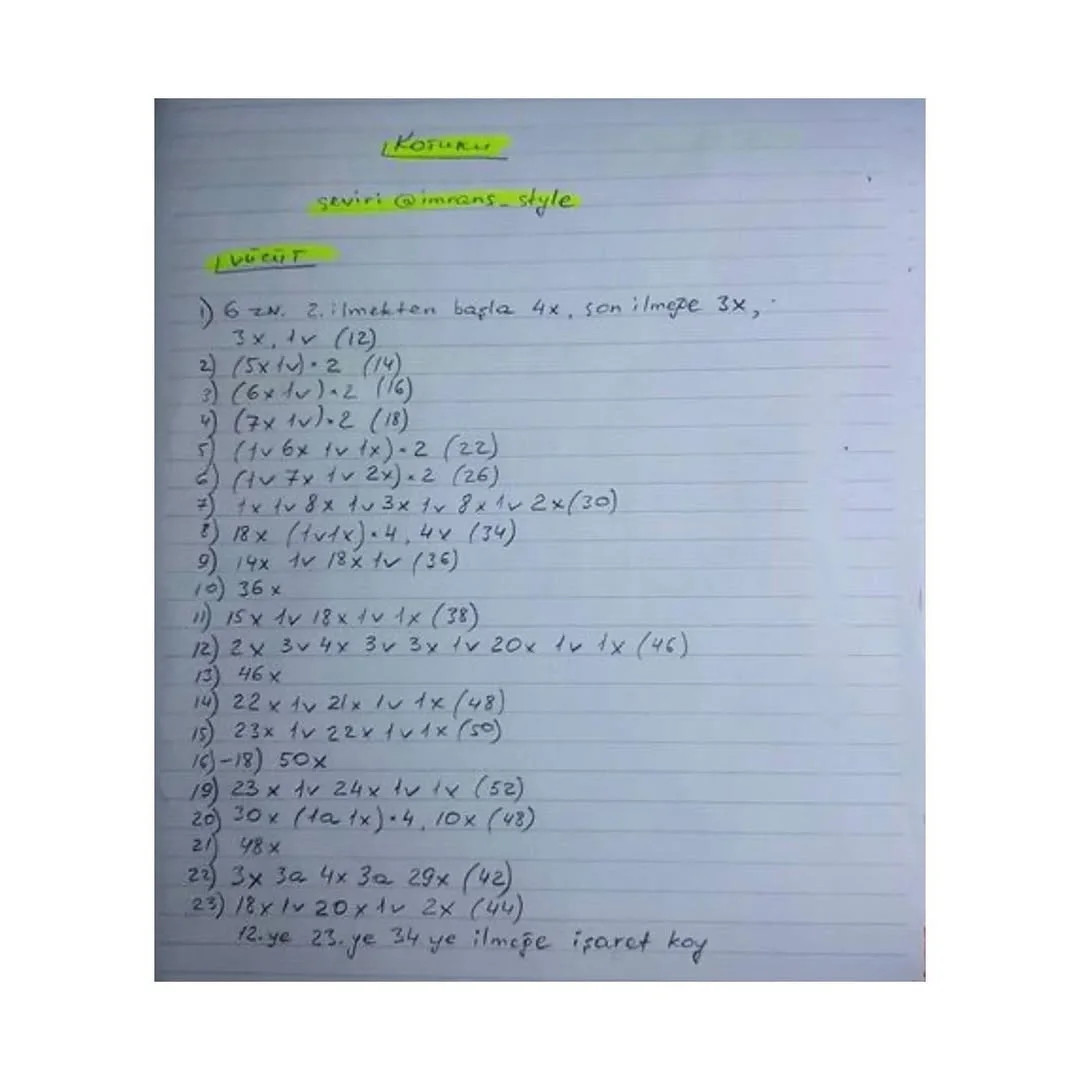 KOTUKU
çeviri @imrans_style
VÜCÜT
1) 6 ZN. 2. ilmekten başla 4x, son ilmeğe 3x,
3x, 1v (12)
2) (5x 1v)*2 (14)
3) (6x 1v)*2 (16)
4) (7x 1v)*2 (18)
5) (1v 6x 1v 1x)*2 (22)
6) (1v 7x 1v 2x)*2 (26)
7) 1x 1v 8x 1v 3x 1v 8x 1v 2x (30)
8) 18x (1v1x)*4, 4x (34)
9) 14x 1v 18x 1v (36)
10) 36x
11) 15x 1v 18x 1v 1x (38)
12) 2x 3v 4x 3v 3x 1v 20x 1v 1x (46)
13) 46x
14) 22x 1v 21x 1v 1x (48)
15) 23x 1v 22x 1v 1x (50)
16)-18) 50x
19) 23x 1v 24x 1v 1x (52)
20) 30x (1a 1x)*4, 10x (48)
21) 48x
22) 3x 3a 4x 3a 29x (42)
23) 18x 1v 20x 1v 2x (44)
12.ye 23.ye 34 ye ilmeğe işaret koy